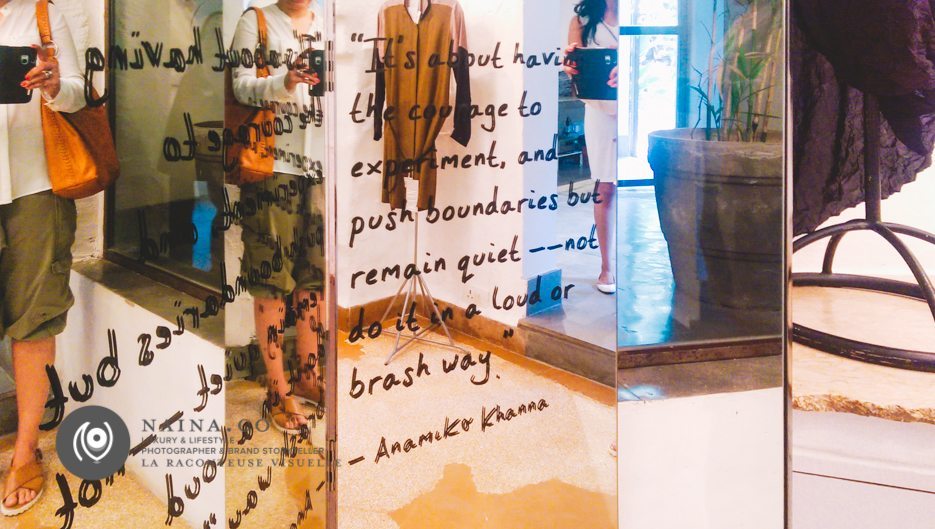 "It's about having
the courage to
experiment, and
push boundaries but
remain quiet --not
do it in a loud or
brash way."
- Anamika Khanna
NAINA.CO
LUXURY & LIFESTYLE
PHOTOGRAPHER & BRAND STORYTELLER
LA RACONTEUSE VISUELLE